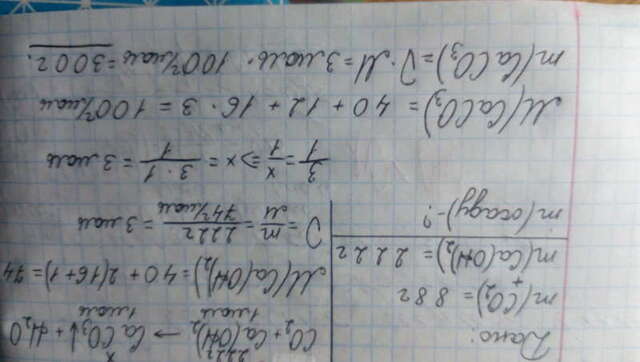 Дано:
m(CO₂) = 88г
+
m(Ca(OH)₂) = 222г
m(осаду) - ?
222г x
CO₂ + Ca(OH)₂ → CaCO₃↓ + H₂O
1моль 1моль
M(Ca(OH)₂) = 40 + 2(16+1) = 74
ν = m/M = 222г/74г/моль = 3моль
3/1 = x/1 ⇒ x = 3·1/1 = 3моль
M(CaCO₃) = 40 + 12 + 16 · 3 = 100г/моль
m(CaCO₃) = ν · M = 3моль · 100г/моль = 300г.